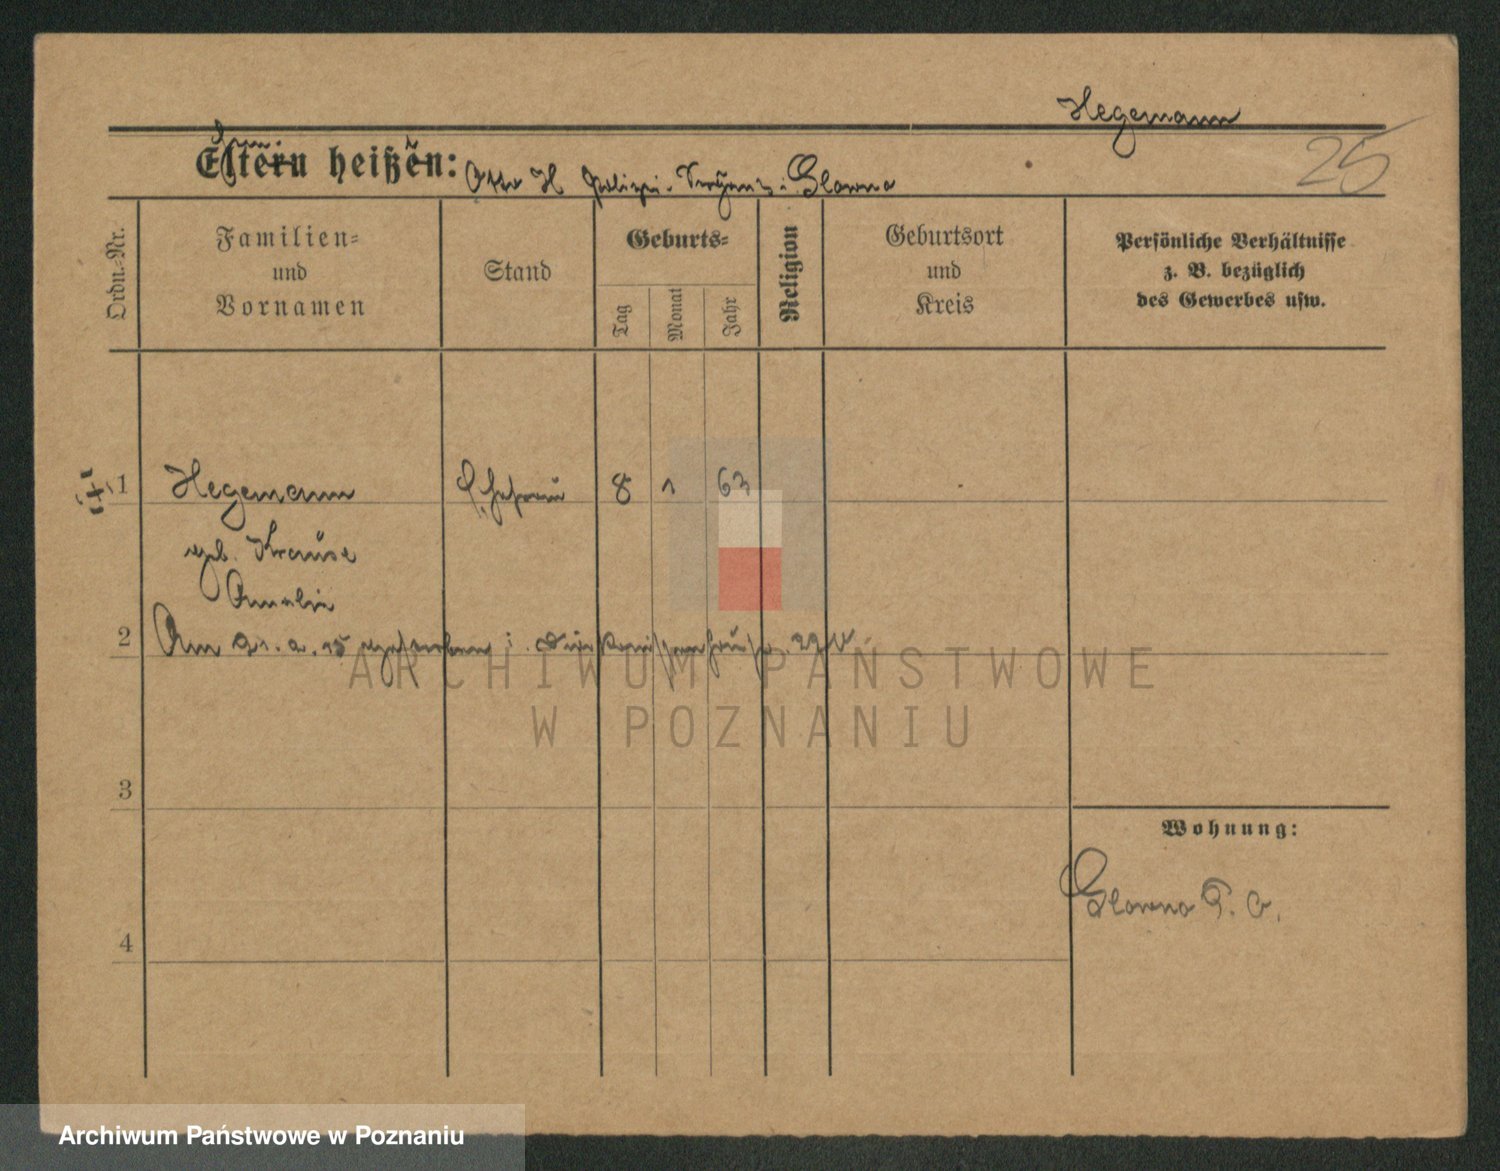 Hegemann
25
Eltern heißen: Otto H Polizei-Sergeant i. Glowno
Ordn.-Nr.
Familien-
und
Vornamen
Stand
Geburts-
Tag
Monat
Jahr
Religion
Geburtsort
und
Kreis
Persönliche Verhältnisse
z. B. bezüglich
des Gewerbes usw.
1 Hegemann Ehefrau 8 1 63
geb. Krause
Amalie
2 Am 21. 2. 15 gestorben i.
3
4
Wohnung:
Glowno
ARCHIWUM PAŃSTWOWE
W POZNANIU
Archiwum Państwowe w Poznaniu